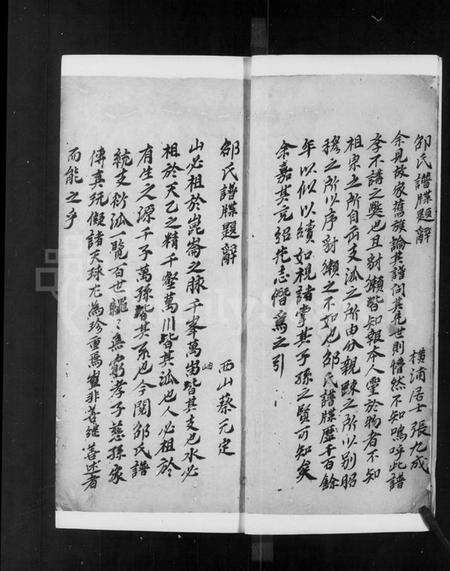 邵氏譜牒題辭
橫浦居士張九成
余見故家舊族論其譜問其先世則懵然不知嗚呼此譜
學不講之獘也且豺獺皆知報本人靈於物者不知
祖宗之所自而支派之所由分親踈之所以別昭
穆之所以序豺獺之不如也邵氏譜牒歷千百餘
年以似以續如視諸掌其子孫之賢可知矣
余嘉其克紹先志僭為之引
邵氏譜牒題辭
西山蔡元定
山必祖於崑崙之脉千峯萬岫皆其支也水必
祖於天乙之精千壑萬川皆其派也人必祖於
有生之源千子萬孫皆其系也今閱邵氏譜
統支衍派一覽百世繩繩無窮孝子慈孫家
傳真玩假諸天球尤為珍重焉豈非善繼善述者
而能之乎